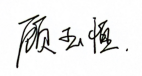 顾玉恒.